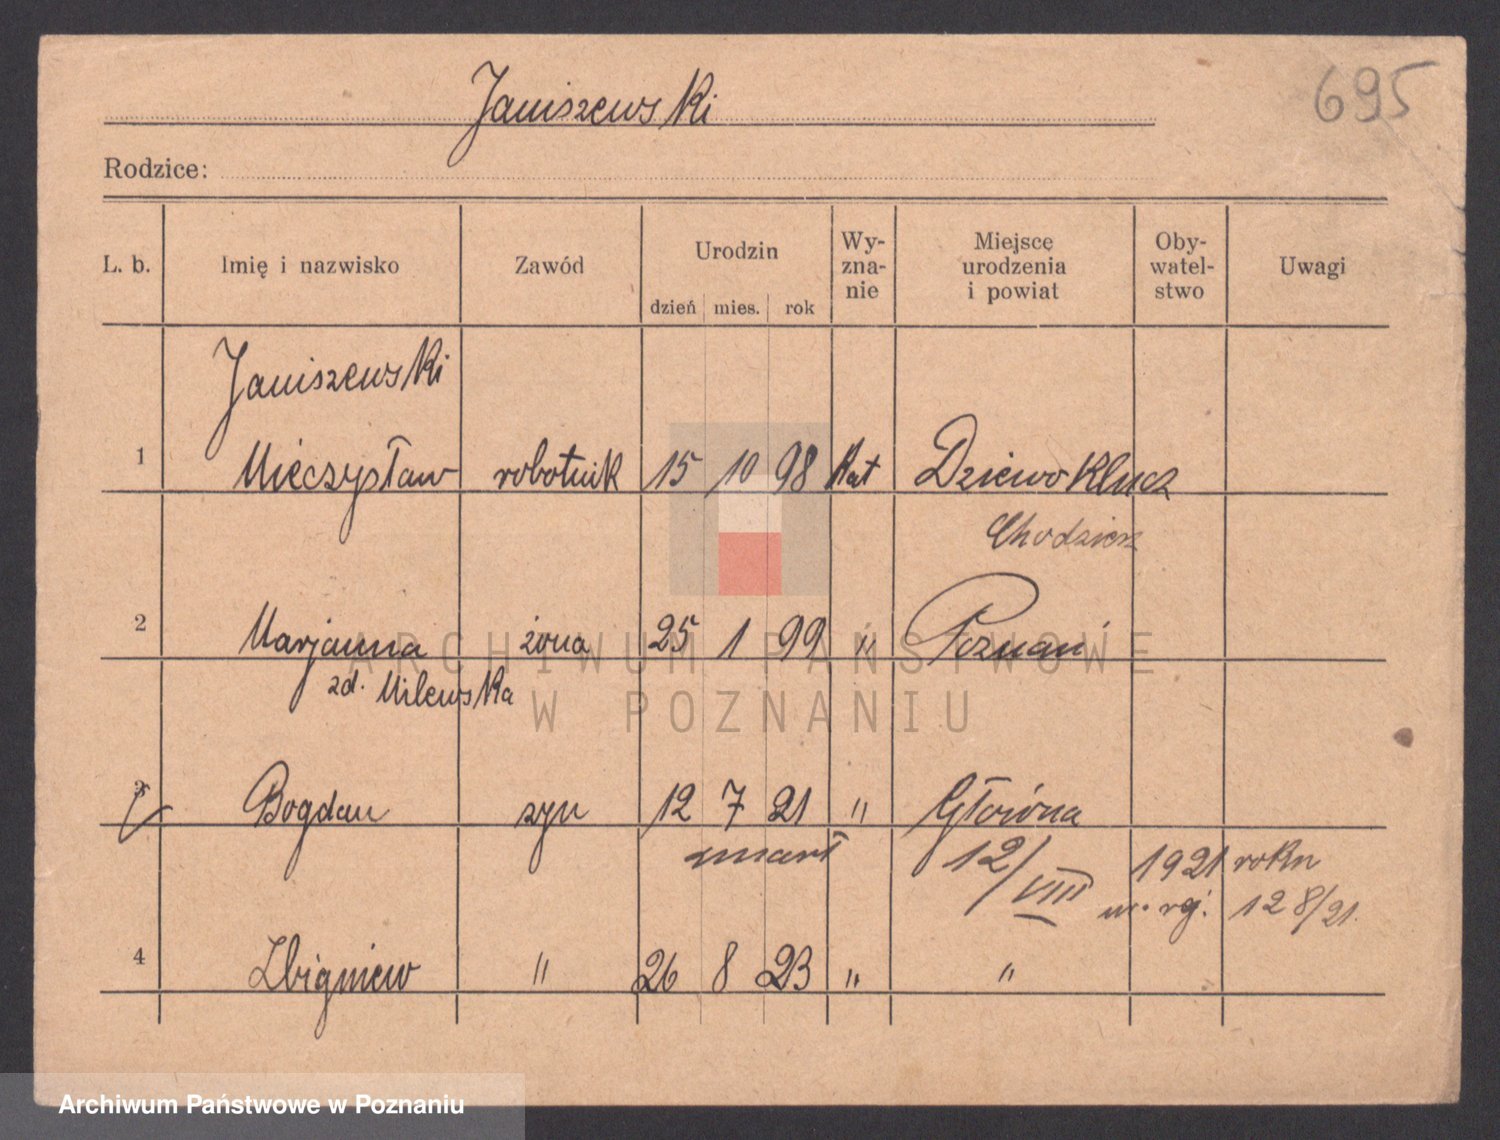 Janiszewski
695
Rodzice:
L. b. Imię i nazwisko Zawód Urodzin dzień mies. rok Wy- zna- nie Miejsce urodzenia i powiat Oby- watel- stwo Uwagi
Janiszewski
1 Mieczysław robotnik 15 10 98 Kat Dziewoklucz
Chodzież
2 Marjanna żona 25 1 99 " Poznań
zd. Milewska
3 Bogdan syn 12 7 21 " Główna
zmarł 12/VIII 1921 roku
128/21.
4 Zbigniew " 26 8 23 " "
ARCHIWUM PAŃSTWOWE
W POZNANIU
Archiwum Państwowe w Poznaniu